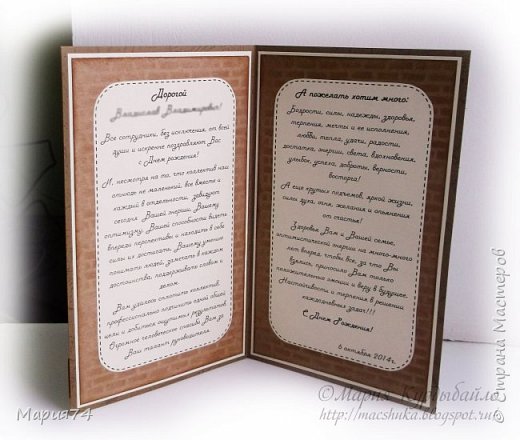 Дорогой
Все сотрудники, без исключения, от всей
души и искренне поздравляют Вас
с Днем рождения!
И, несмотря на то, что коллектив наш
отнюдь не маленький, все вместе и
каждый в отдельности, завидуют
сегодня Вашей энергии, Вашему
оптимизму, Вашей способности видеть
впереди перспективы и находить в себе
силы их достигать, Вашему умению
понимать людей, замечать в каждом
достоинства, поддерживать словом и
делом.
Вам удалось сплотить коллектив,
профессионально подчинить одной общей
цели и добиться ощутимых результатов.
Огромное человеческое спасибо Вам за
Ваш талант руководителя.
А пожелать хотим много:
Бодрости, силы, надежды, здоровья,
терпения, мечты и ее исполнения,
любви, тепла, удачи, радости,
достатка, энергии, света, вдохновения,
улыбок, успеха, доброты, верности,
восторга!
А еще крутых подъемов, яркой жизни,
силы духа, огня, желания и опьянения
от счастья!
Здоровья Вам и Вашей семье,
оптимистической энергии на много-много
лет вперед, чтобы все, за что Вы
взялись, приносило Вам только
положительные эмоции и веру в будущее.
Настойчивости и терпения в решении
каждодневных задач!!!
С Днем Рождения!
6 октября 2014г.
Мария74
© Мария Кулдыбайло
http://macshuka.blogspot.ru/
© Страна Мастеров